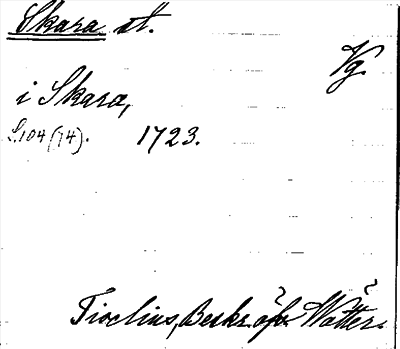 Skara st.
Vg.
i Skara,
S.104 (74). 1723.
Tiselius, Beskr. öfv. Wätter.